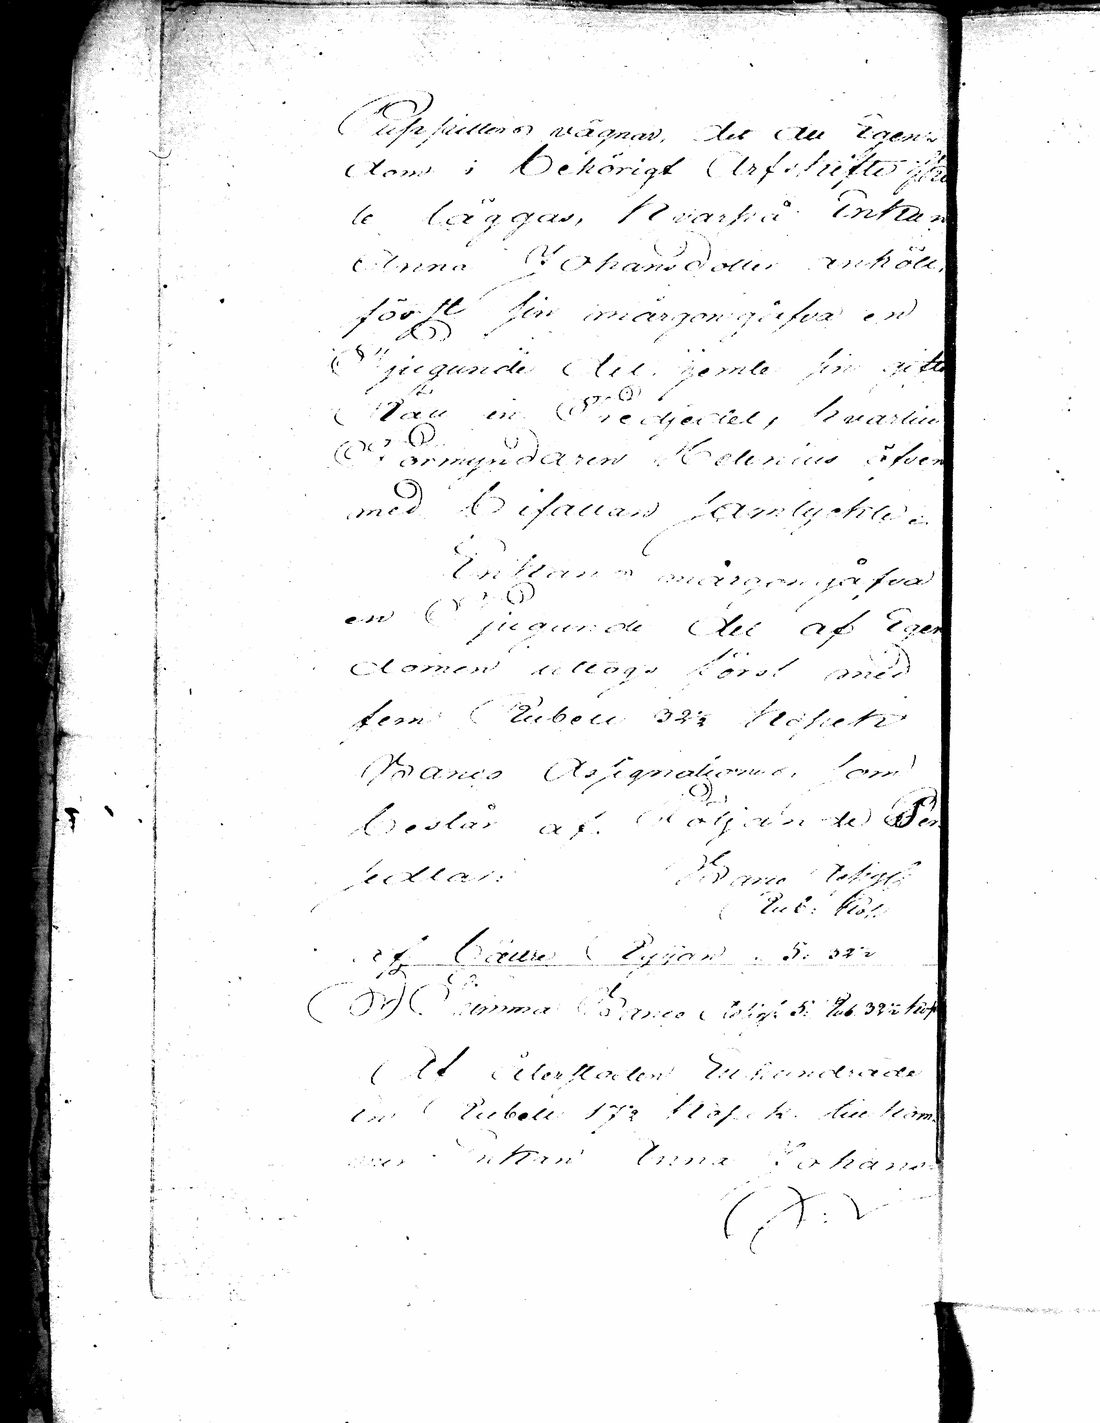 vägnar, det all Egen-
dom i behörigt Arfskifte
läggas, hvarpå Enkan
Anna Johansdotter anhölt,
först sin mårgongåfva en
Tjugunde del jemte sin gifto
Rätt en Tredjedel, hvartill
Förmyndaren Helenius äfven
med bifallan samtyckte.
Enkans mårgongåfva
en Tjugunde del af Egen
domen uttogs först med
fem Rubell 32½ Kopek
Banco Assignationer, som
består af följande Per
sedlar: Banco Assig:
Rub: Kop:
Af bättre Ryijan 5. 32½
Summa Banco Assig: 5. Rub. 32½ Kop
Af återstoden Etthundrade
en Rubell 17½ Kopek tillkom
mer Enkan Anna Johans-